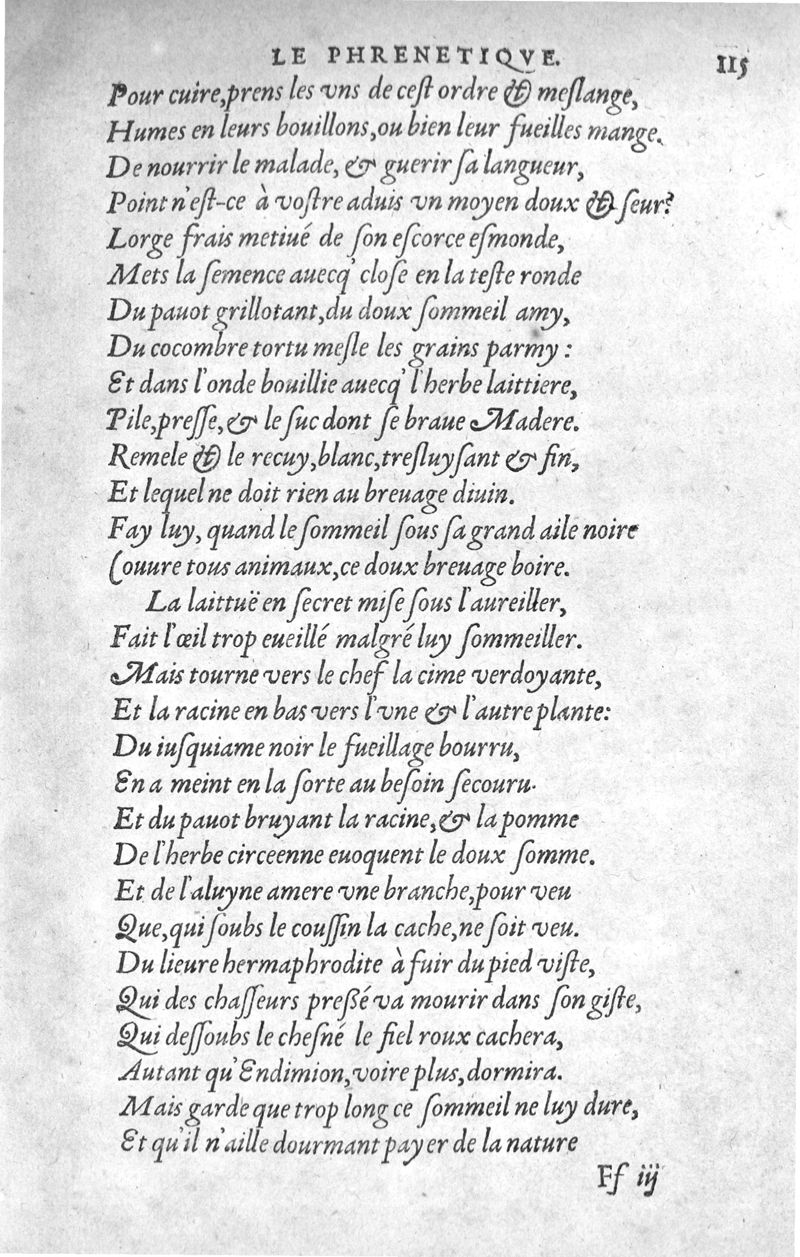 LE PHRENETIQVE. 115
Pour cuire,prens les vns de ceſt ordre & meſlange,
Humes en leurs bouillons,ou bien leur fueilles mange.
De nourrir le malade, & guerir ſa langueur,
Point n'eſt-ce à voſtre aduis vn moyen doux & ſeur?
Lorge frais metiué de ſon eſcorce eſmonde,
Mets la ſemence auecq' cloſe en la teſte ronde
Du pauot grillotant,du doux ſommeil amy,
Du cocombre tortu meſle les grains parmy :
Et dans l'onde bouillie auecq' l'herbe laittiere,
Pile,preſſe,& le ſuc dont ſe braue Madere.
Remele & le recuy,blanc,treſluyſant & fin,
Et lequel ne doit rien au breuage diuin.
Fay luy, quand le ſommeil ſous ſa grand aile noire
Couure tous animaux,ce doux breuage boire.
La laittuë en ſecret miſe ſous l'aureiller,
Fait l'œil trop eueillé malgré luy ſommeiller.
Mais tourne vers le chef la cime verdoyante,
Et la racine en bas vers l'vne & l'autre plante:
Du iuſquiame noir le fueillage bourru,
En a meint en la ſorte au beſoin ſecouru.
Et du pauot bruyant la racine,& la pomme
De l'herbe circeenne euoquent le doux ſomme.
Et de l'aluyne amere vne branche,pour veu
Que,qui ſoubs le couſſin la cache,ne ſoit veu.
Du lieure hermaphrodite à fuir du pied viſte,
Qui des chaſſeurs preßé va mourir dans ſon giſte,
Qui deſſoubs le cheſné le fiel roux cachera,
Autant qu'Endimion,voire plus,dormira.
Mais garde que trop long ce ſommeil ne luy dure,
Et qu'il n'aille dourmant payer de la nature
Ff iij